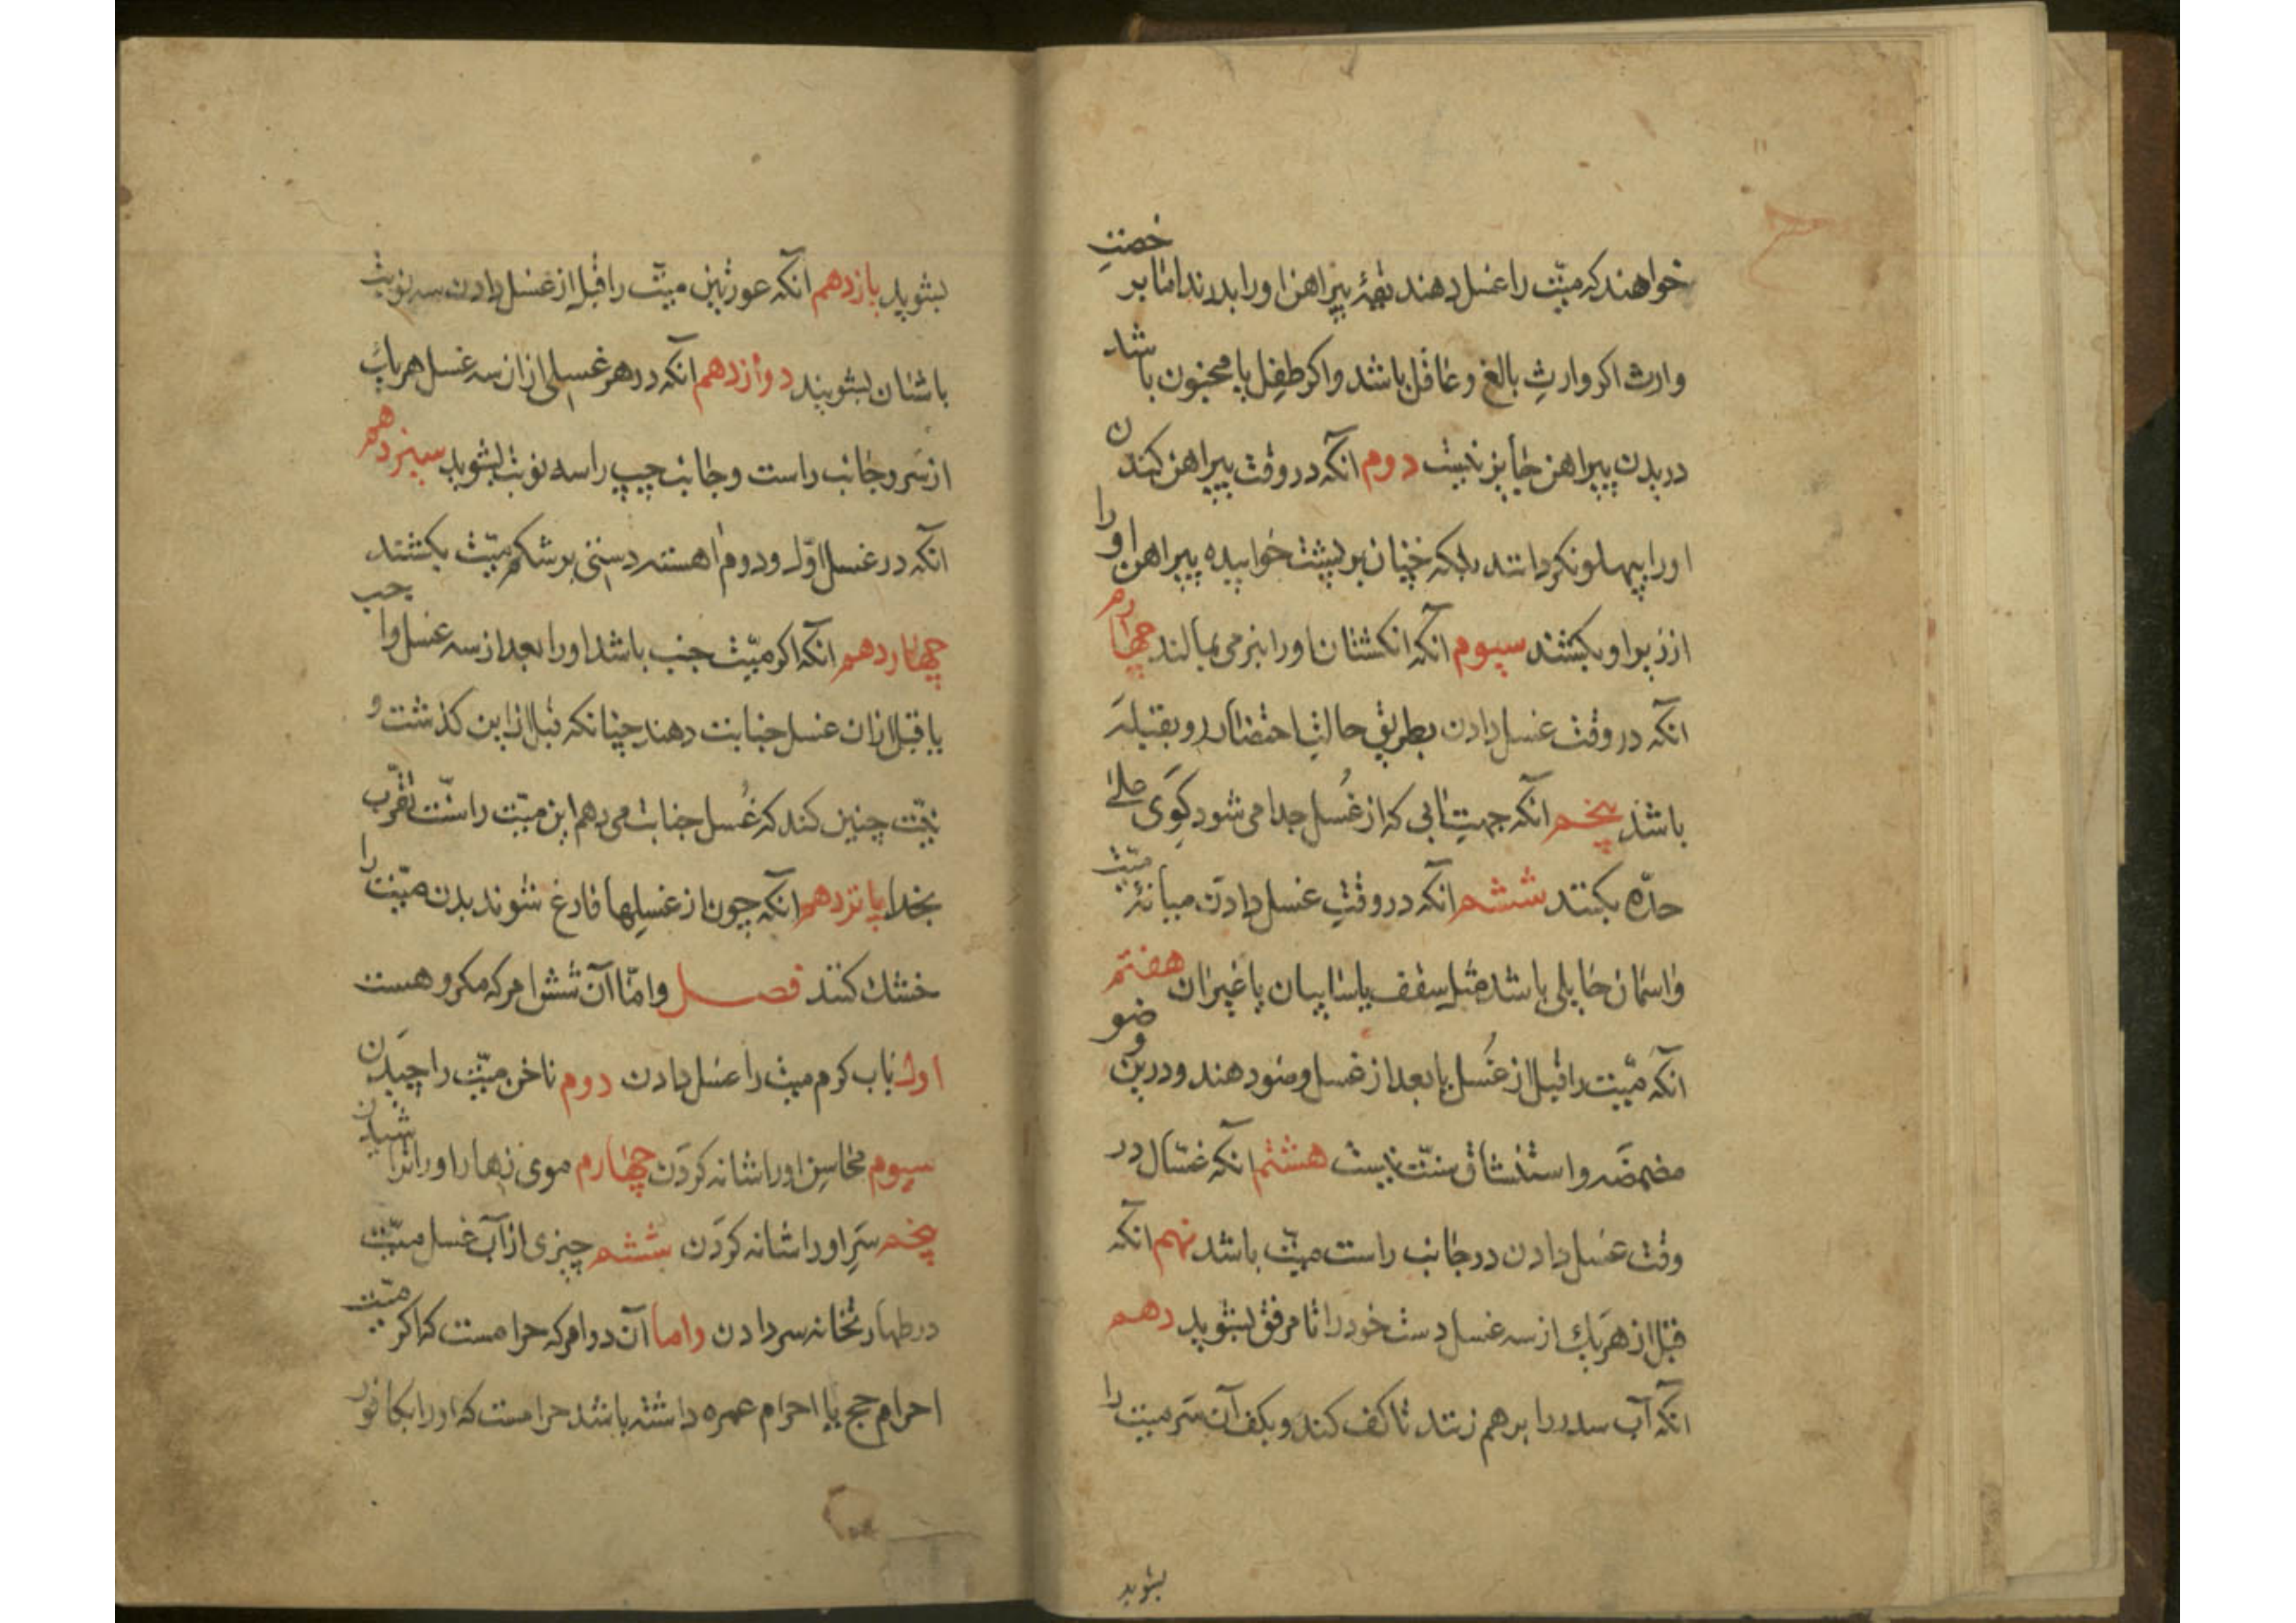 خواهند که میّت را غسل دهند تیمهٔ پیراهن او را بدرند اما برخصت
وارث اکر وارث بالغ و عاقل باشد و اکر طفل یا مجنون باشد
دریدن پیراهن جایز نیست دوم انکه در وقت پیراهن کندن
او را بپهلو نکردانند بلکه چنان بر پشت خوابیده پیراهن او را
از زیر او بکشند سیوم انکه انکشتان او را بنرمی بمالند چهارم
انکه در وقت غسل دادن بطریق حالت احتضار رو بقبله
باشد پنجم انکه جهت ابی که از غُسل جدا می شود کَوی علی
حدّه بکنند ششم انکه در وقت غسل دادن میانهٔ میّت
و اسمان حایلی باشد مثل سقف یا سایبان یا غیر ان هفتم
انکه میّت را قبل از غُسل یا بعد از غسل وضو دهند و درین وضو
مضمضه و استنشاق سنّت نیست هشتم انکه غسّال در
وقت غسل دادن در جانب راست میّت باشد نهم انکه
قبل از هر یک از سه غسل دست خود را تا مرفق بشوید دهم
انکه آب سدر را بر هم زنند تا کف کند و بکف آن سَر میت را
بشوید
بشوید یازدهم انکه عورتین میّت را قبل از غسل دادن سه نوبت
باشنان بشویند دوازدهم انکه در هر غسلی از ان سه غسل هر یک
از سَر و جانب راست و جانب چپ را سه نوبت بشوید سیزدهم
انکه در غسل اوّل و دوم اهسته دستی بر شکم میّت بکشند
چهاردهم انکه اکر میّت جنب باشد او را بعد از سه غسل واجب
یا قبل از ان غسل جنابت دهند چنانکه قبل از این کذشت و
نیّت چنین کند که غُسل جنابت می دهم این میّت را سنّت تقرّب
بخدا پانزدهم انکه چون از غسلها فارغ شوند بدن میّت را
خشک کنند فصل و امّا آن شش امر که مکروهست
اول بآب کرم میت را غسل دادن دوم ناخن میّت را چیدن
سیوم محاسن او را شانه کردَن چهارم موی زهار او را تراشیدن
پنجم سَرِ او را شانه کردَن ششم چیزی از آب غسل میّت
در طهارتخانه سر دادن و اما آن دو امر که حرامست که اکر میّت
احرام حج یا احرام عمره داشته باشد حرامست که او را بکافور